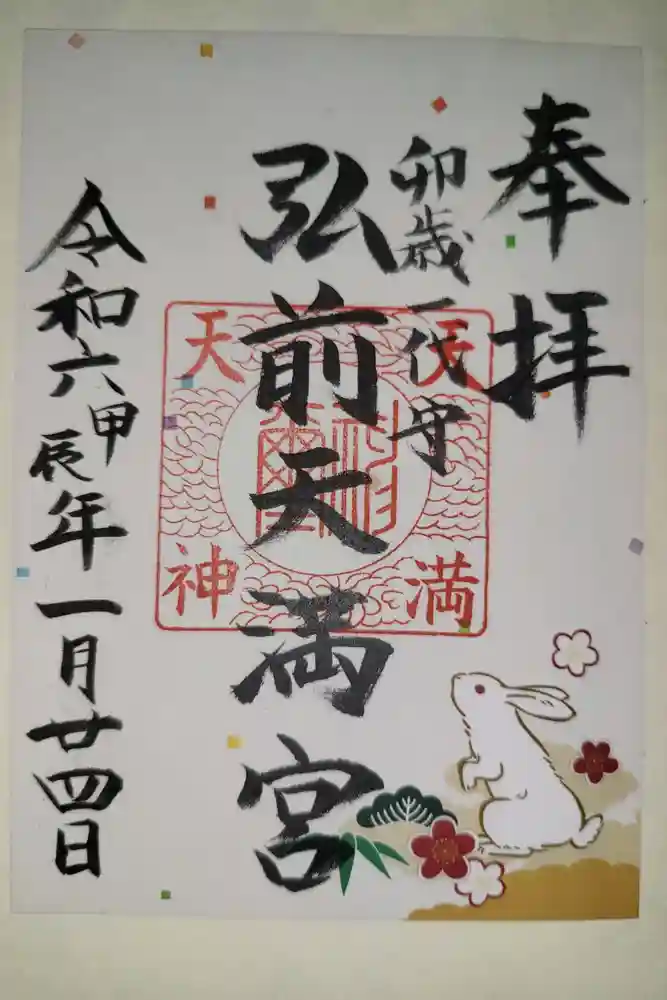 奉拝
卯歳一代守
弘前天満宮
令和六甲辰年一月廿四日
天満
天神